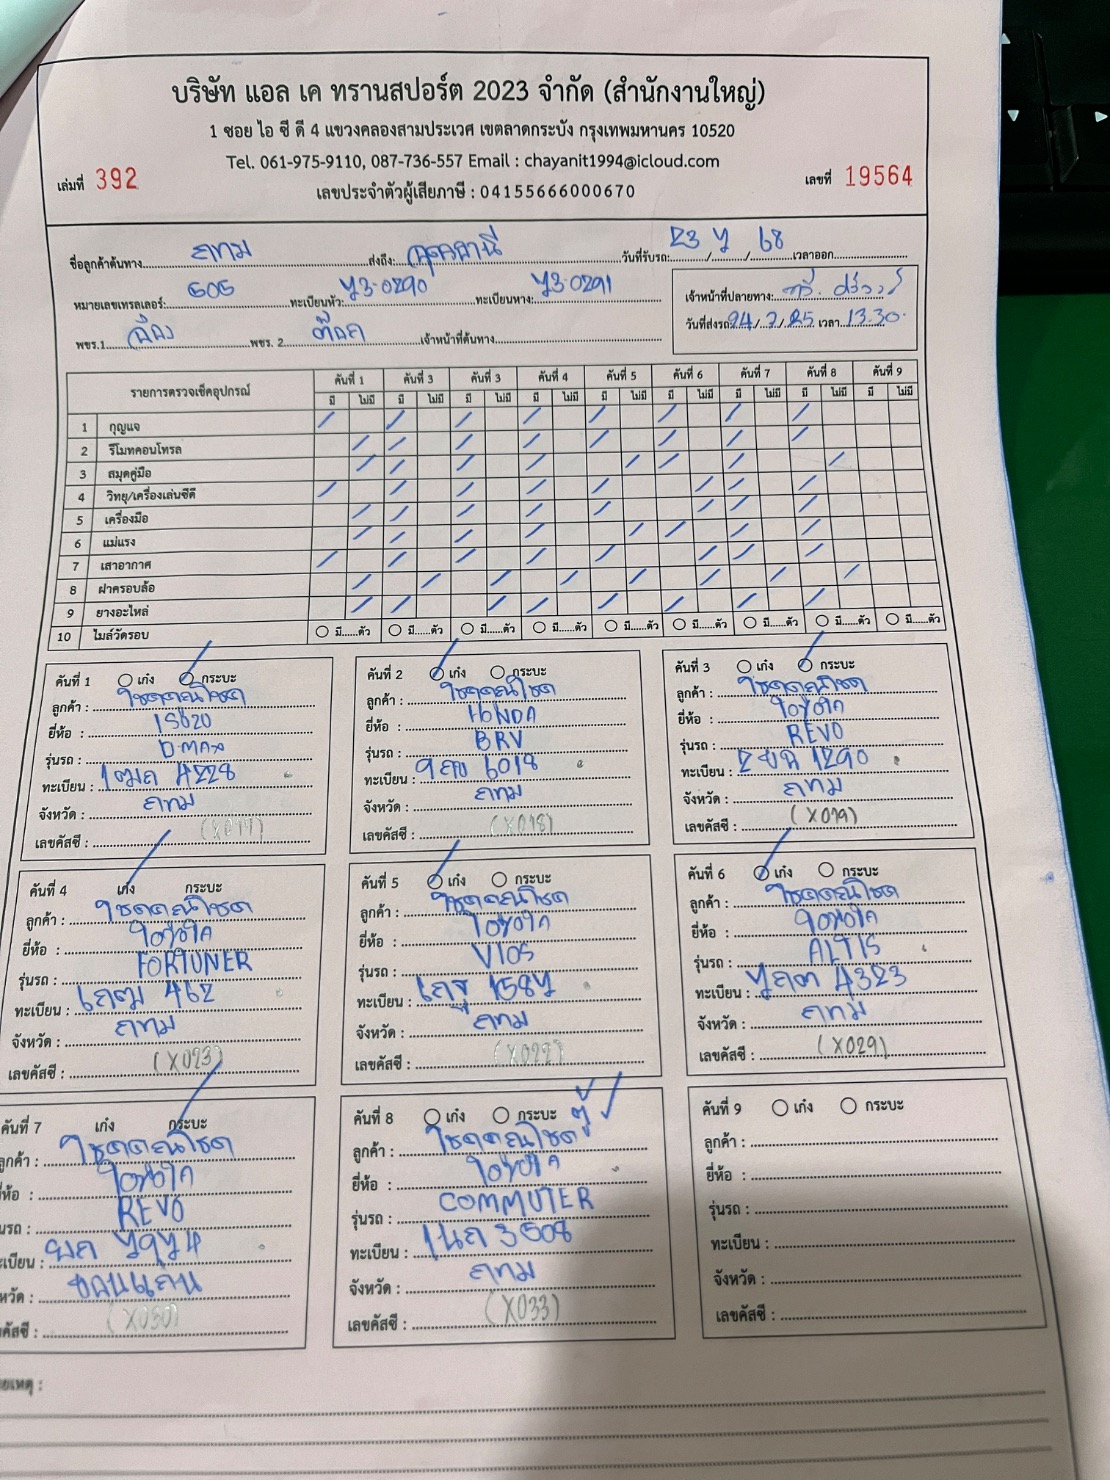 บริษัท แอล เค ทรานสปอร์ต 2023 จำกัด (สำนักงานใหญ่)
1 ซอย ไอ ซี ดี 4 แขวงคลองสามประเวศ เขตลาดกระบัง กรุงเทพมหานคร 10520
Tel. 061-975-9110, 087-736-557 Email : chayanit1994@icloud.com
เล่มที่ 392 เลขประจำตัวผู้เสียภาษี : 04155666000670 เลขที่ 19564
ชื่อลูกค้าต้นทาง กทม ส่งถึง: อุดรธานี วันที่รับรถ: 23 / 7 / 68 เวลาออก
หมายเลขเทรลเลอร์: ทะเบียนหัว: 73-0290 ทะเบียนหาง: 73-0291 เจ้าหน้าที่ปลายทาง:
พขร.1 พขร. 2 เจ้าหน้าที่ต้นทาง วันที่ส่งรถ 24/7/25 เวลา 13.30
รายการตรวจเช็คอุปกรณ์ คันที่ 1 คันที่ 3 คันที่ 3 คันที่ 4 คันที่ 5 คันที่ 6 คันที่ 7 คันที่ 8 คันที่ 9
มี ไม่มี มี ไม่มี มี ไม่มี มี ไม่มี มี ไม่มี มี ไม่มี มี ไม่มี มี ไม่มี มี ไม่มี
1 กุญแจ
2 รีโมทคอนโทรล
3 สมุดคู่มือ
4 วิทยุ/เครื่องเล่นซีดี
5 เครื่องมือ
6 แม่แรง
7 เสาอากาศ
8 ฝาครอบล้อ
9 ยางอะไหล่
10 ไมล์วัดรอบ มี......ตัว มี......ตัว มี......ตัว มี......ตัว มี......ตัว มี......ตัว มี......ตัว มี......ตัว มี......ตัว
คันที่ 1 เก๋ง กระบะ
ลูกค้า :
ยี่ห้อ : ISUZU
รุ่นรถ : D-MAX
ทะเบียน : 4228
จังหวัด : กทม
เลขคัสซี :
คันที่ 2 เก๋ง กระบะ
ลูกค้า :
ยี่ห้อ : HONDA
รุ่นรถ : BRV
ทะเบียน : 6018
จังหวัด : กทม
เลขคัสซี : (X018)
คันที่ 3 เก๋ง กระบะ
ลูกค้า :
ยี่ห้อ : TOYOTA
รุ่นรถ : REVO
ทะเบียน : 1290
จังหวัด : กทม
เลขคัสซี : (X019)
คันที่ 4 เก๋ง กระบะ
ลูกค้า :
ยี่ห้อ : TOYOTA
รุ่นรถ : FORTUNER
ทะเบียน : 462
จังหวัด : กทม
เลขคัสซี : (X023)
คันที่ 5 เก๋ง กระบะ
ลูกค้า :
ยี่ห้อ : TOYOTA
รุ่นรถ : VIOS
ทะเบียน : 1587
จังหวัด : กทม
เลขคัสซี :
คันที่ 6 เก๋ง กระบะ
ลูกค้า :
ยี่ห้อ : TOYOTA
รุ่นรถ : ALTIS
ทะเบียน : 4323
จังหวัด : กทม
เลขคัสซี : (X029)
คันที่ 7 เก๋ง กระบะ
ลูกค้า :
ยี่ห้อ : TOYOTA
รุ่นรถ : REVO
ทะเบียน :
จังหวัด : ขอนแก่น
เลขคัสซี : (X030)
คันที่ 8 เก๋ง กระบะ ตู้
ลูกค้า :
ยี่ห้อ : TOYOTA
รุ่นรถ : COMMUTER
ทะเบียน : 3508
จังหวัด : กทม
เลขคัสซี : (X033)
คันที่ 9 เก๋ง กระบะ
ลูกค้า :
ยี่ห้อ :
รุ่นรถ :
ทะเบียน :
จังหวัด :
เลขคัสซี :